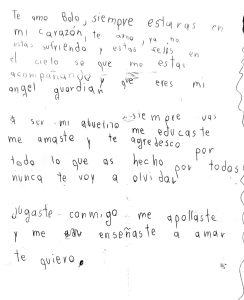 Te amo Bolo, siempre estaras en
mi carazón, te amo, ya no
estas sufriendo y estas feliz en
el cielo se que me estas
acompañando y que eres mi
angel guardian
A ser mi abuelito siempre vas
me amaste y me educaste
te agredesco por
todo lo que as hecho por todos
nunca te voy a olvidar
Jugaste conmigo me apollaste
y me enseñaste a amar
te quiero.